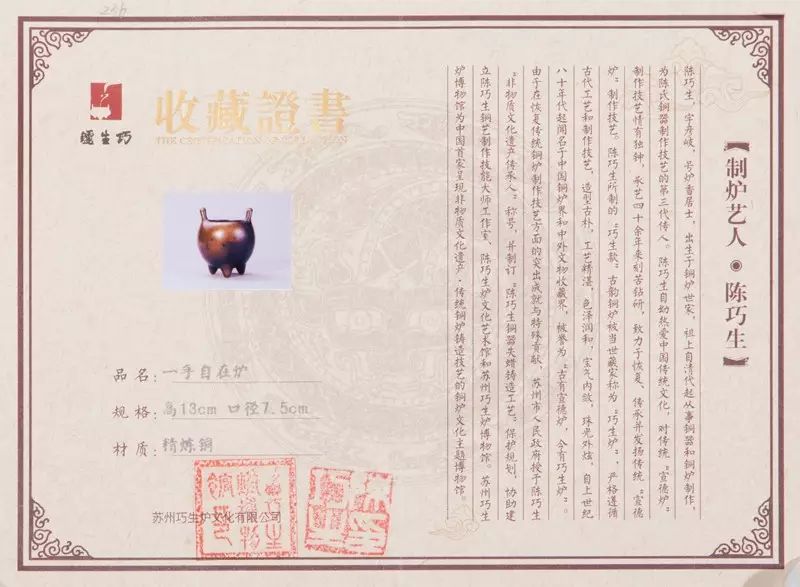 256
巧生炉
收藏證書
THE CERTIFICATION OF COLLECTION
品名：一手自在炉
规格：高13cm 口径7.5cm
材质：精炼铜
苏州巧生炉文化有限公司
【制炉艺人●陈巧生】
陈巧生，字彦岐，号炉香居士，出生于铜炉世家，祖上自清代起从事铜器和铜炉制作，
为陈氏铜器制作技艺的第三代传人。陈巧生自幼热爱中国传统文化，对传统“宣德炉”
制作技艺情有独钟，承艺四十余年来刻苦钻研，致力于恢复、传承并发扬传统“宣德
炉”制作技艺。陈巧生所制的“巧生款”古韵铜炉被当世藏家称为“巧生炉”，严格遵循
古代工艺和制作技艺，造型古朴，工艺精湛，色泽润和，宝气内敛，珠光外炫，自上世纪
八十年代起闻名于中国铜炉界和中外文物收藏界，被誉为“古有宣德炉，今有巧生炉”。
由于在恢复传统铜炉制作技艺方面的突出成就与特殊贡献，苏州市人民政府授于陈巧生
“非物质文化遗产传承人”称号，并制订“陈巧生铜器失蜡铸造工艺”保护规划，协助建
立陈巧生铜艺制作技能大师工作室、陈巧生炉文化艺术馆和苏州巧生炉博物馆。苏州巧生
炉博物馆为中国首家呈现非物质文化遗产·传统铜炉铸造技艺的铜炉文化主题博物馆。